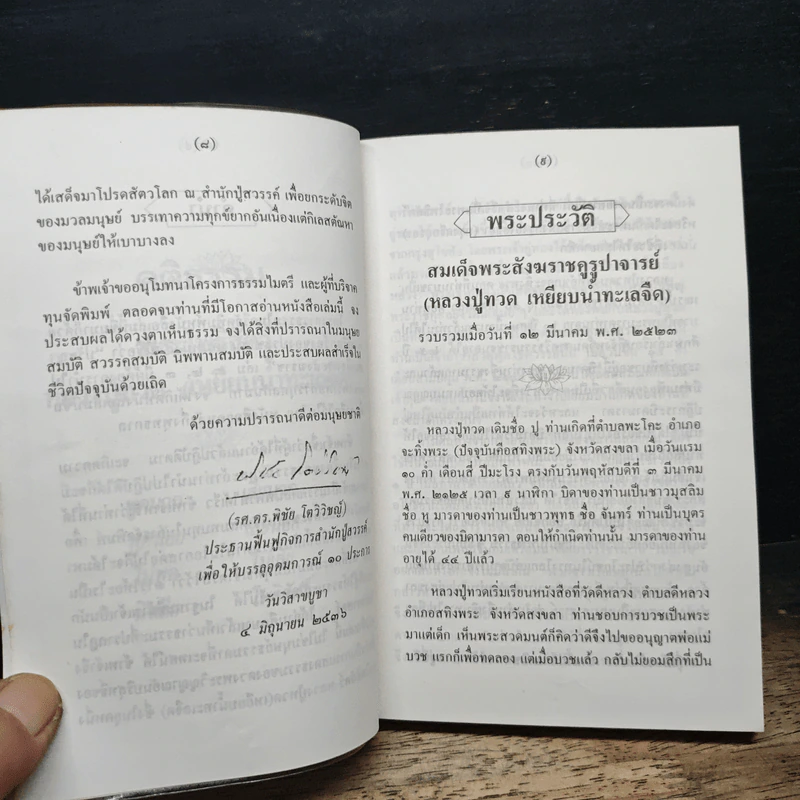 (๘)
ได้เสด็จมาโปรดสัตวโลก ณ สำนักปู่สวรรค์ เพื่อยกระดับจิต
ของมวลมนุษย์ บรรเทาความทุกข์ยากอันเนื่องแต่กิเลสตัณหา
ของมนุษย์ให้เบาบางลง
ข้าพเจ้าขออนุโมทนาโครงการธรรมไมตรี และผู้ที่บริจาค
ทุนจัดพิมพ์ ตลอดจนท่านที่มีโอกาสอ่านหนังสือเล่มนี้ จง
ประสบผลได้ดวงตาเห็นธรรม จงได้สิ่งที่ปรารถนาในมนุษย
สมบัติ สวรรคสมบัติ นิพพานสมบัติ และประสบผลสำเร็จใน
ชีวิตปัจจุบันด้วยเถิด
ด้วยความปรารถนาดีต่อมนุษยชาติ
(รศ.ดร.พิชัย โตวิวิชญ์)
ประธานฟื้นฟูกิจการสำนักปู่สวรรค์
เพื่อให้บรรลุอุดมการณ์ ๑๐ ประการ
วันวิสาขบูชา
๔ มิถุนายน ๒๕๓๖
(๙)
พระประวัติ
สมเด็จพระสังฆราชคูรูปาจารย์
(หลวงปู่ทวด เหยียบน้ำทะเลจืด)
รวบรวมเมื่อวันที่ ๑๒ มีนาคม พ.ศ. ๒๕๒๓
หลวงปู่ทวด เดิมชื่อ ปู ท่านเกิดที่ตำบลพะโคะ อำเภอ
จะทิ้งพระ (ปัจจุบันคือสทิงพระ) จังหวัดสงขลา เมื่อวันแรม
๑๐ ค่ำ เดือนสี่ ปีมะโรง ตรงกับวันพฤหัสบดีที่ ๓ มีนาคม
พ.ศ. ๒๑๒๕ เวลา ๙ นาฬิกา บิดาของท่านเป็นชาวมุสลิม
ชื่อ หู มารดาของท่านเป็นชาวพุทธ ชื่อ จันทร์ ท่านเป็นบุตร
คนเดียวของบิดามารดา ตอนให้กำเนิดท่านนั้น มารดาของท่าน
อายุได้ ๔๔ ปีแล้ว
หลวงปู่ทวดเริ่มเรียนหนังสือที่วัดดีหลวง ตำบลดีหลวง
อำเภอสทิงพระ จังหวัดสงขลา ท่านชอบการบวชเป็นพระ
มาแต่เด็ก เห็นพระสวดมนต์ก็คิดว่าดีจึงไปขออนุญาตพ่อแม่
บวช แรกก็เพื่อทดลอง แต่เมื่อบวชแล้ว กลับไม่ยอมสึกที่เป็น